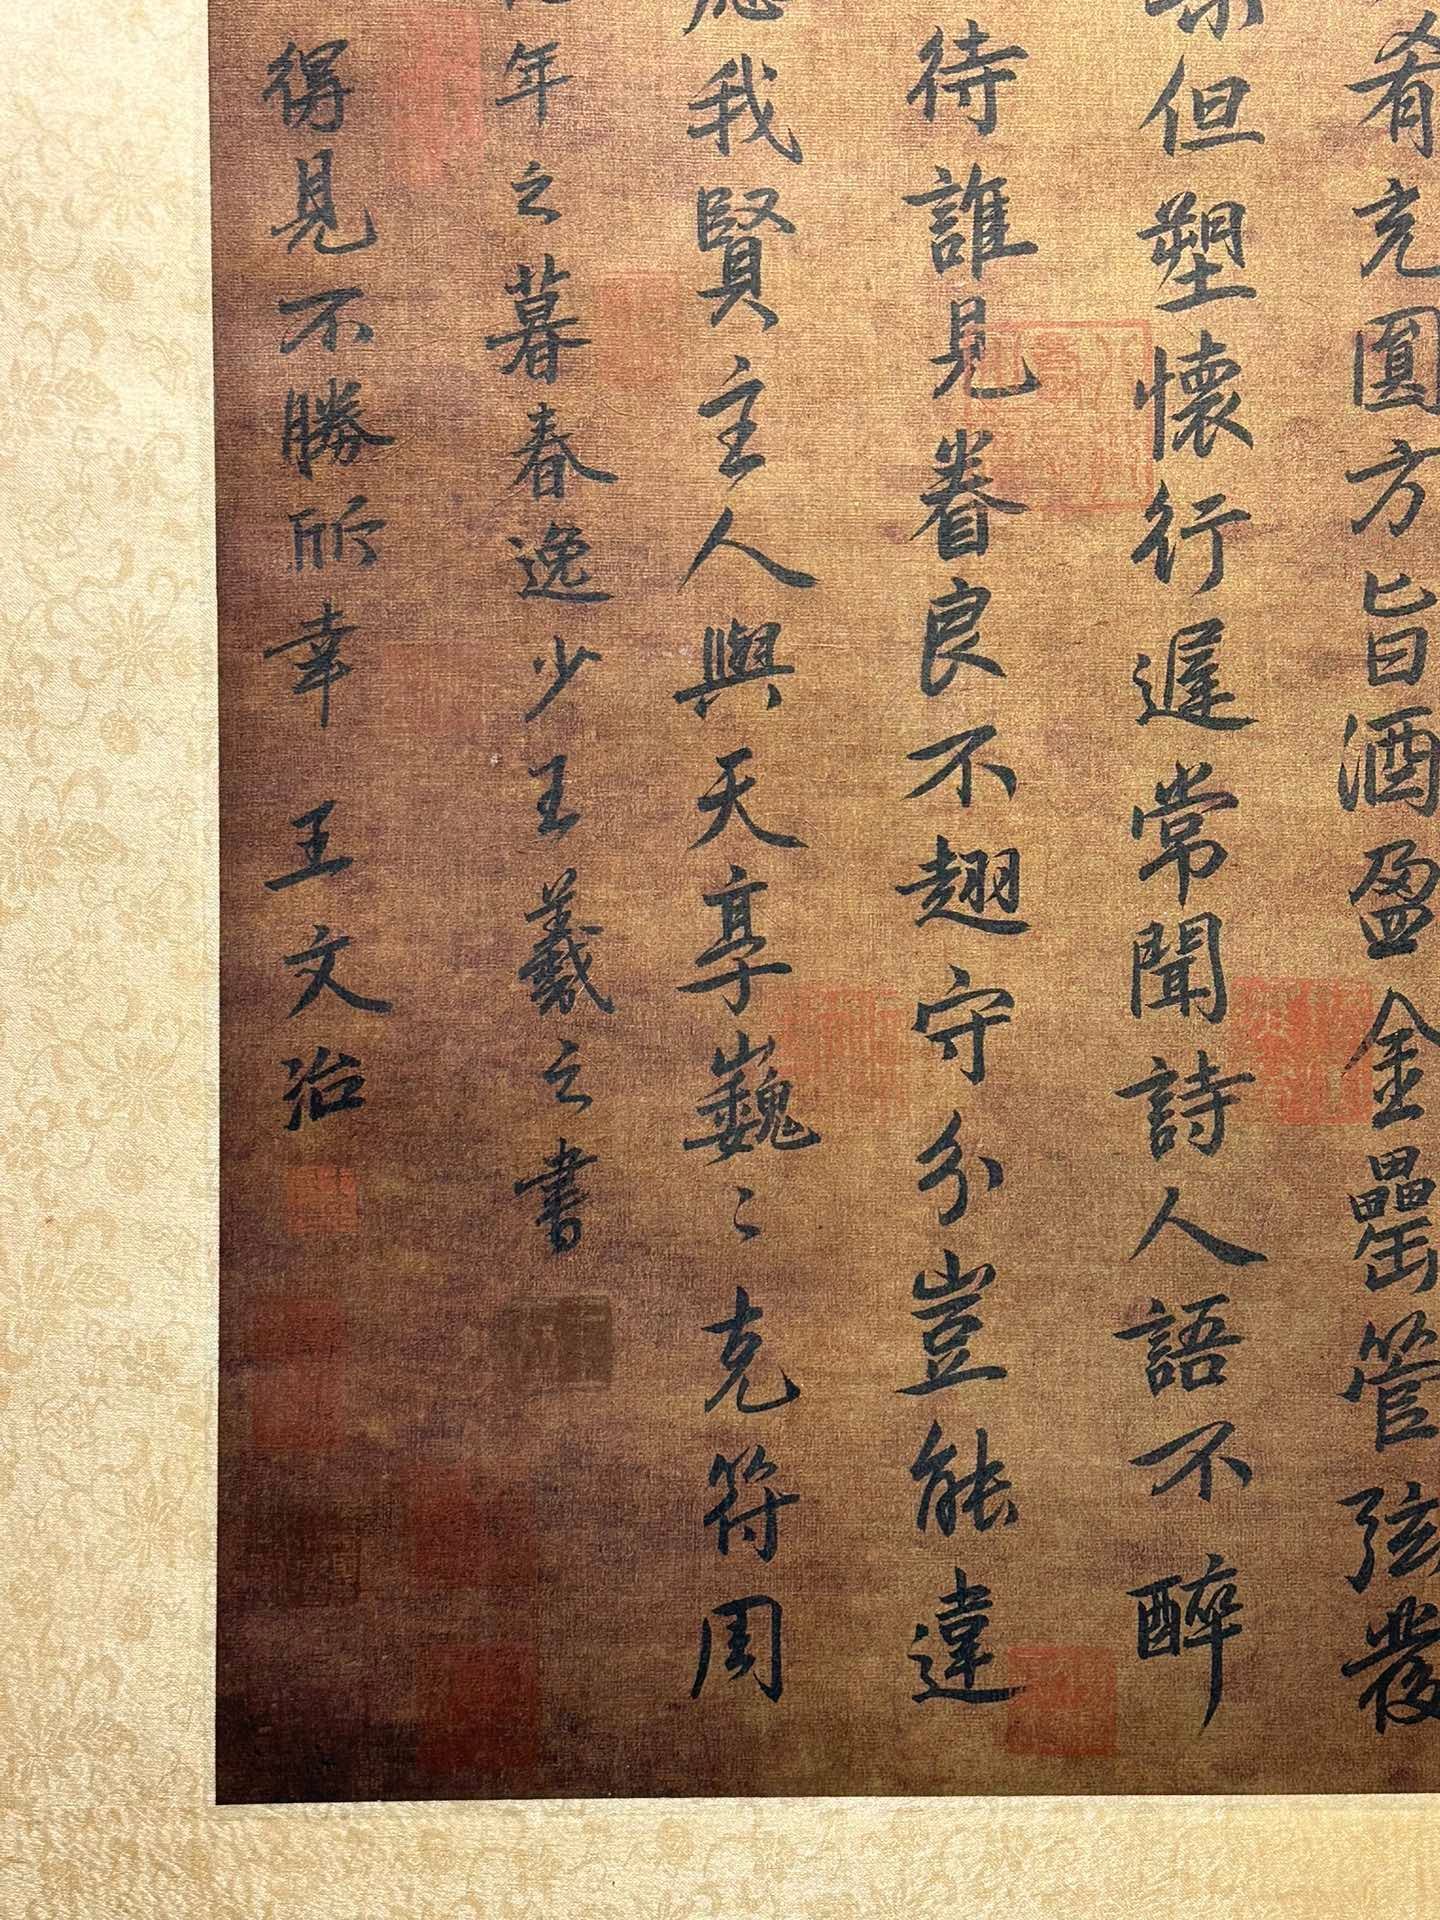 肴充圓方旨酒盈金罍管弦發
但塑懷行遲常聞詩人語不醉
待誰見眷良不翅守分豈能違
應我賢主人與天享巍〻克符周
年之暮春逸少王羲之書
得見不勝所幸王文治